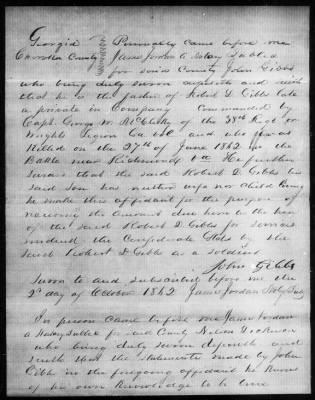 Georgia Personally came before me
County James Jordan a Notary Public
for said County John Gibbs
who being duly sworn deposeth and saith
that he is the father of Robert D. Gibbs late
a private in Company commanded by
Capt. George W. of the 38th Regt or
Wrights Legion Ga Vol and who was
Killed on the 27th of June 1862 in the
Battle near Richmond Va He further
Swears that the said Robert D. Gibbs his
said Son has neither wife nor child living
he makes this affidavit for the purpose of
receiving the amount due him as the heir
of the said Robert D. Gibbs for services
rendered the Confederate States by the
said Robert D Gibbs as a soldier
John Gibbs
Sworn to and subscribed before me the
2d day of October 1862 James Jordan Noty Pub
In person came before me James Jordan
a Notary Public for said County Nelson Dickerson
who being duly sworn deposeth and
saith that the statements made by John
Gibbs in the foregoing affidavit he knows
of his own knowledge to be true